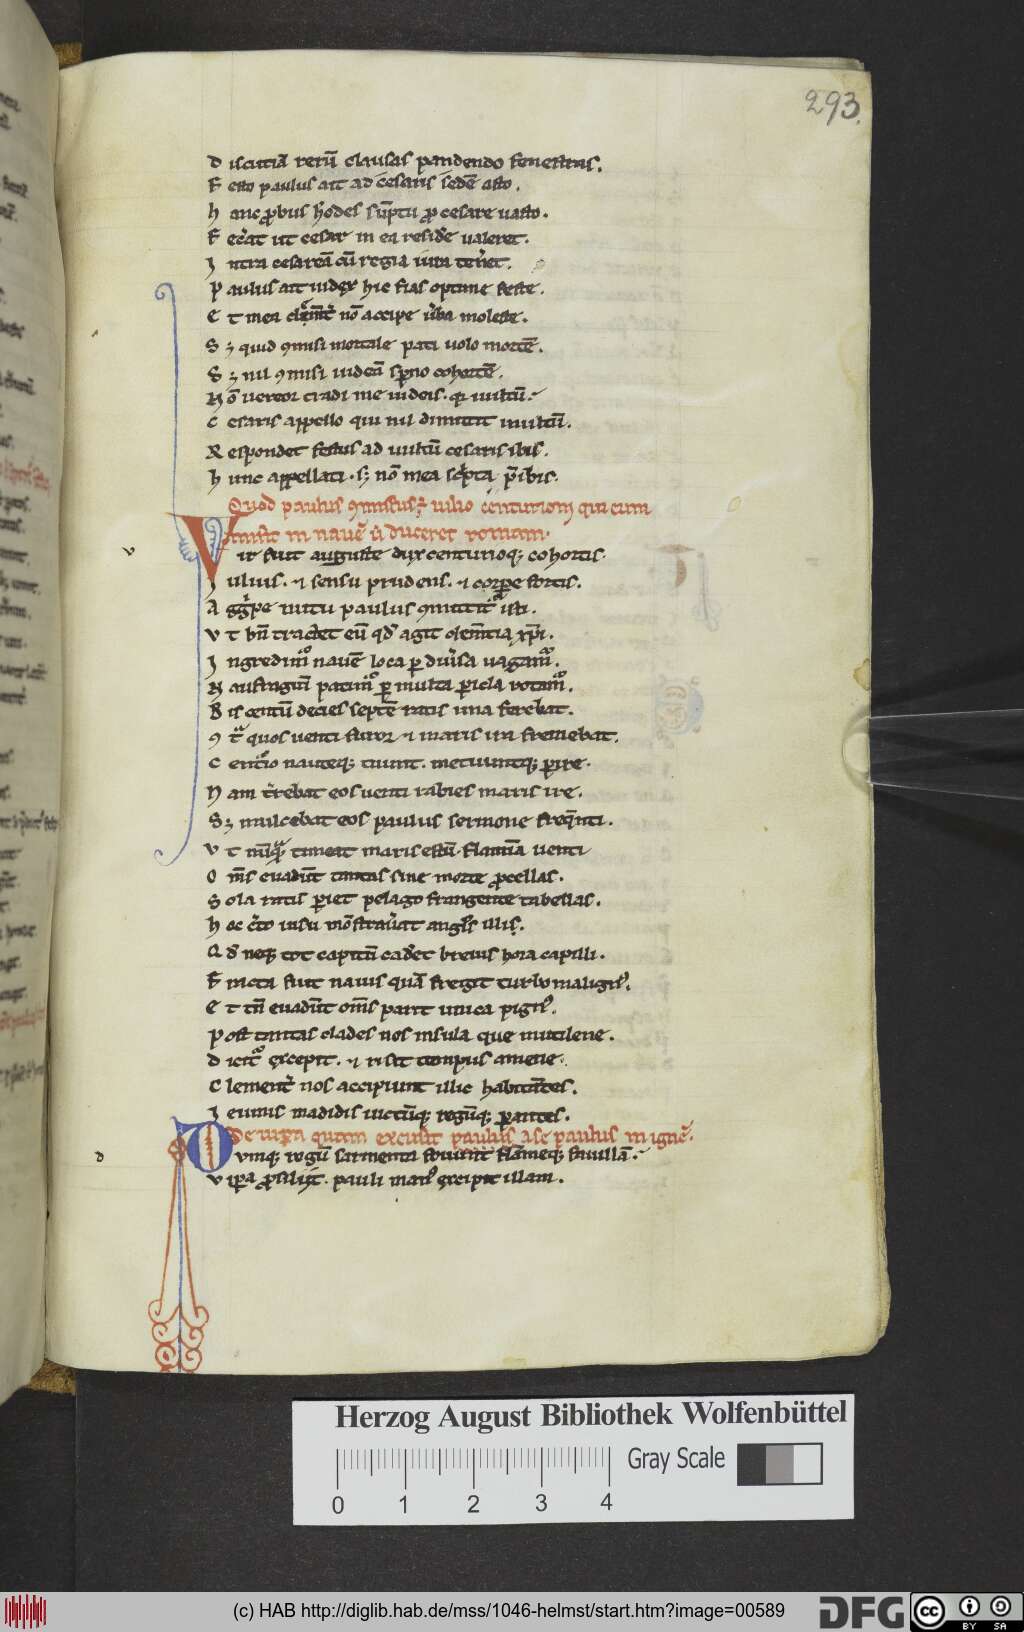 293.
D iscutiā rerū clausas pandendo fenestras.
F esto paulus ait ad cesaris sedē asto.
h anc ꝓbus h'odes sūptu ꝓ cesare uasto.
F ec'at ut cesar in ea resid'e ualeret.
I ntra cesareā cū regia iura ten'et.
P aulus ait iudex hic fias optime feste.
E t mea nō accipe u'ba moleste.
S ꝫ quid ꝯmisi mortale pati uolo mortē.
S ꝫ nil ꝯmisi iudeā sp'no cohortē.
N ō uereor tradi me iudeis.
C esaris appello qui nil dimittit inultū.
R espondet festus ad uultū cesaris ibis.
h unc appellasti. sꝫ nō mea sc'pta p'ibis.
Quod paulus ꝯmissus ÷ iulio centurioni qui eum
misit in nauē ut duceret romam.
V ir fuit auguste dux centurioqꝫ cohortis.
I ulius. ⁊ sensu prudens. ⁊ corpore fortis.
A gg'pe nutu paulus ꝯmittit' isti.
V t bn̄ tractet eū qd' agit clem̄tia xp̄i.
I ngredim' nauē loca ꝑ diu'sa uagam'.
N aufragiū patim' ꝑ multa ꝑicla rotam'.
B is centū decies septē ratis una ferebat.
ꝯ t' quos uenti furor ⁊ maris ira fremebat.
C enturio nauteqꝫ timent. metuuntqꝫ ꝑire.
N am t'rebat eos uenti rabies maris ire.
S ꝫ mulcebat eos paulus sermone freq̄nti.
V t nūq̄ timeat maris estū flamina uenti
O m̄s euadūt tantas sine morte ꝓcellas.
S ola ratis ꝑiet pelago frangente tabellas.
h oc c'to uisu mōstrau'at angl's illis.
Q d' neqꝫ tot capitū cad'et breuis hora capilli.
F racta fuit nauis quā fregit turbo malign'.
E t tn̄ euadūt om̄s parit unica pign'.
P ost tantas clades nos insula que mutilene.
D icit' excepit. ⁊ risit tempus amene.
C lement' nos accipiunt illic habitātes.
I eiunis madidis uictūqꝫ rogūqꝫ parantes.
De uipera quam excussit paulus a se paulus in ignē.
D vmqꝫ rogū sarmenta fouent flāmeqꝫ fauillā.
V ipera ꝓsilijt. pauli man' excipit illam.
v
d
Herzog August Bibliothek Wolfenbüttel
0 1 2 3 4
Gray Scale
(c) HAB http://diglib.hab.de/mss/1046-helmst/start.htm?image=00589
DFG
cc BY SA